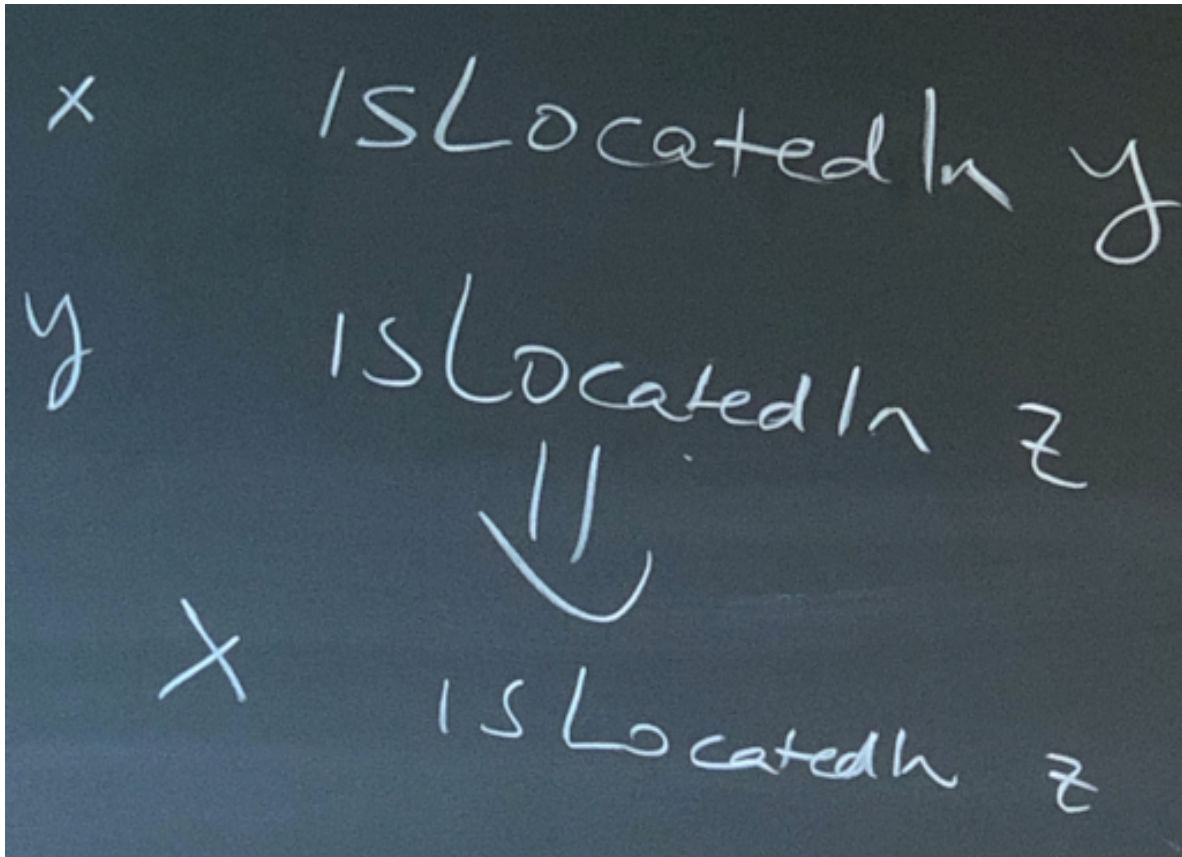 x isLocatedIn y
y isLocatedIn z
⇓
x isLocatedIn z